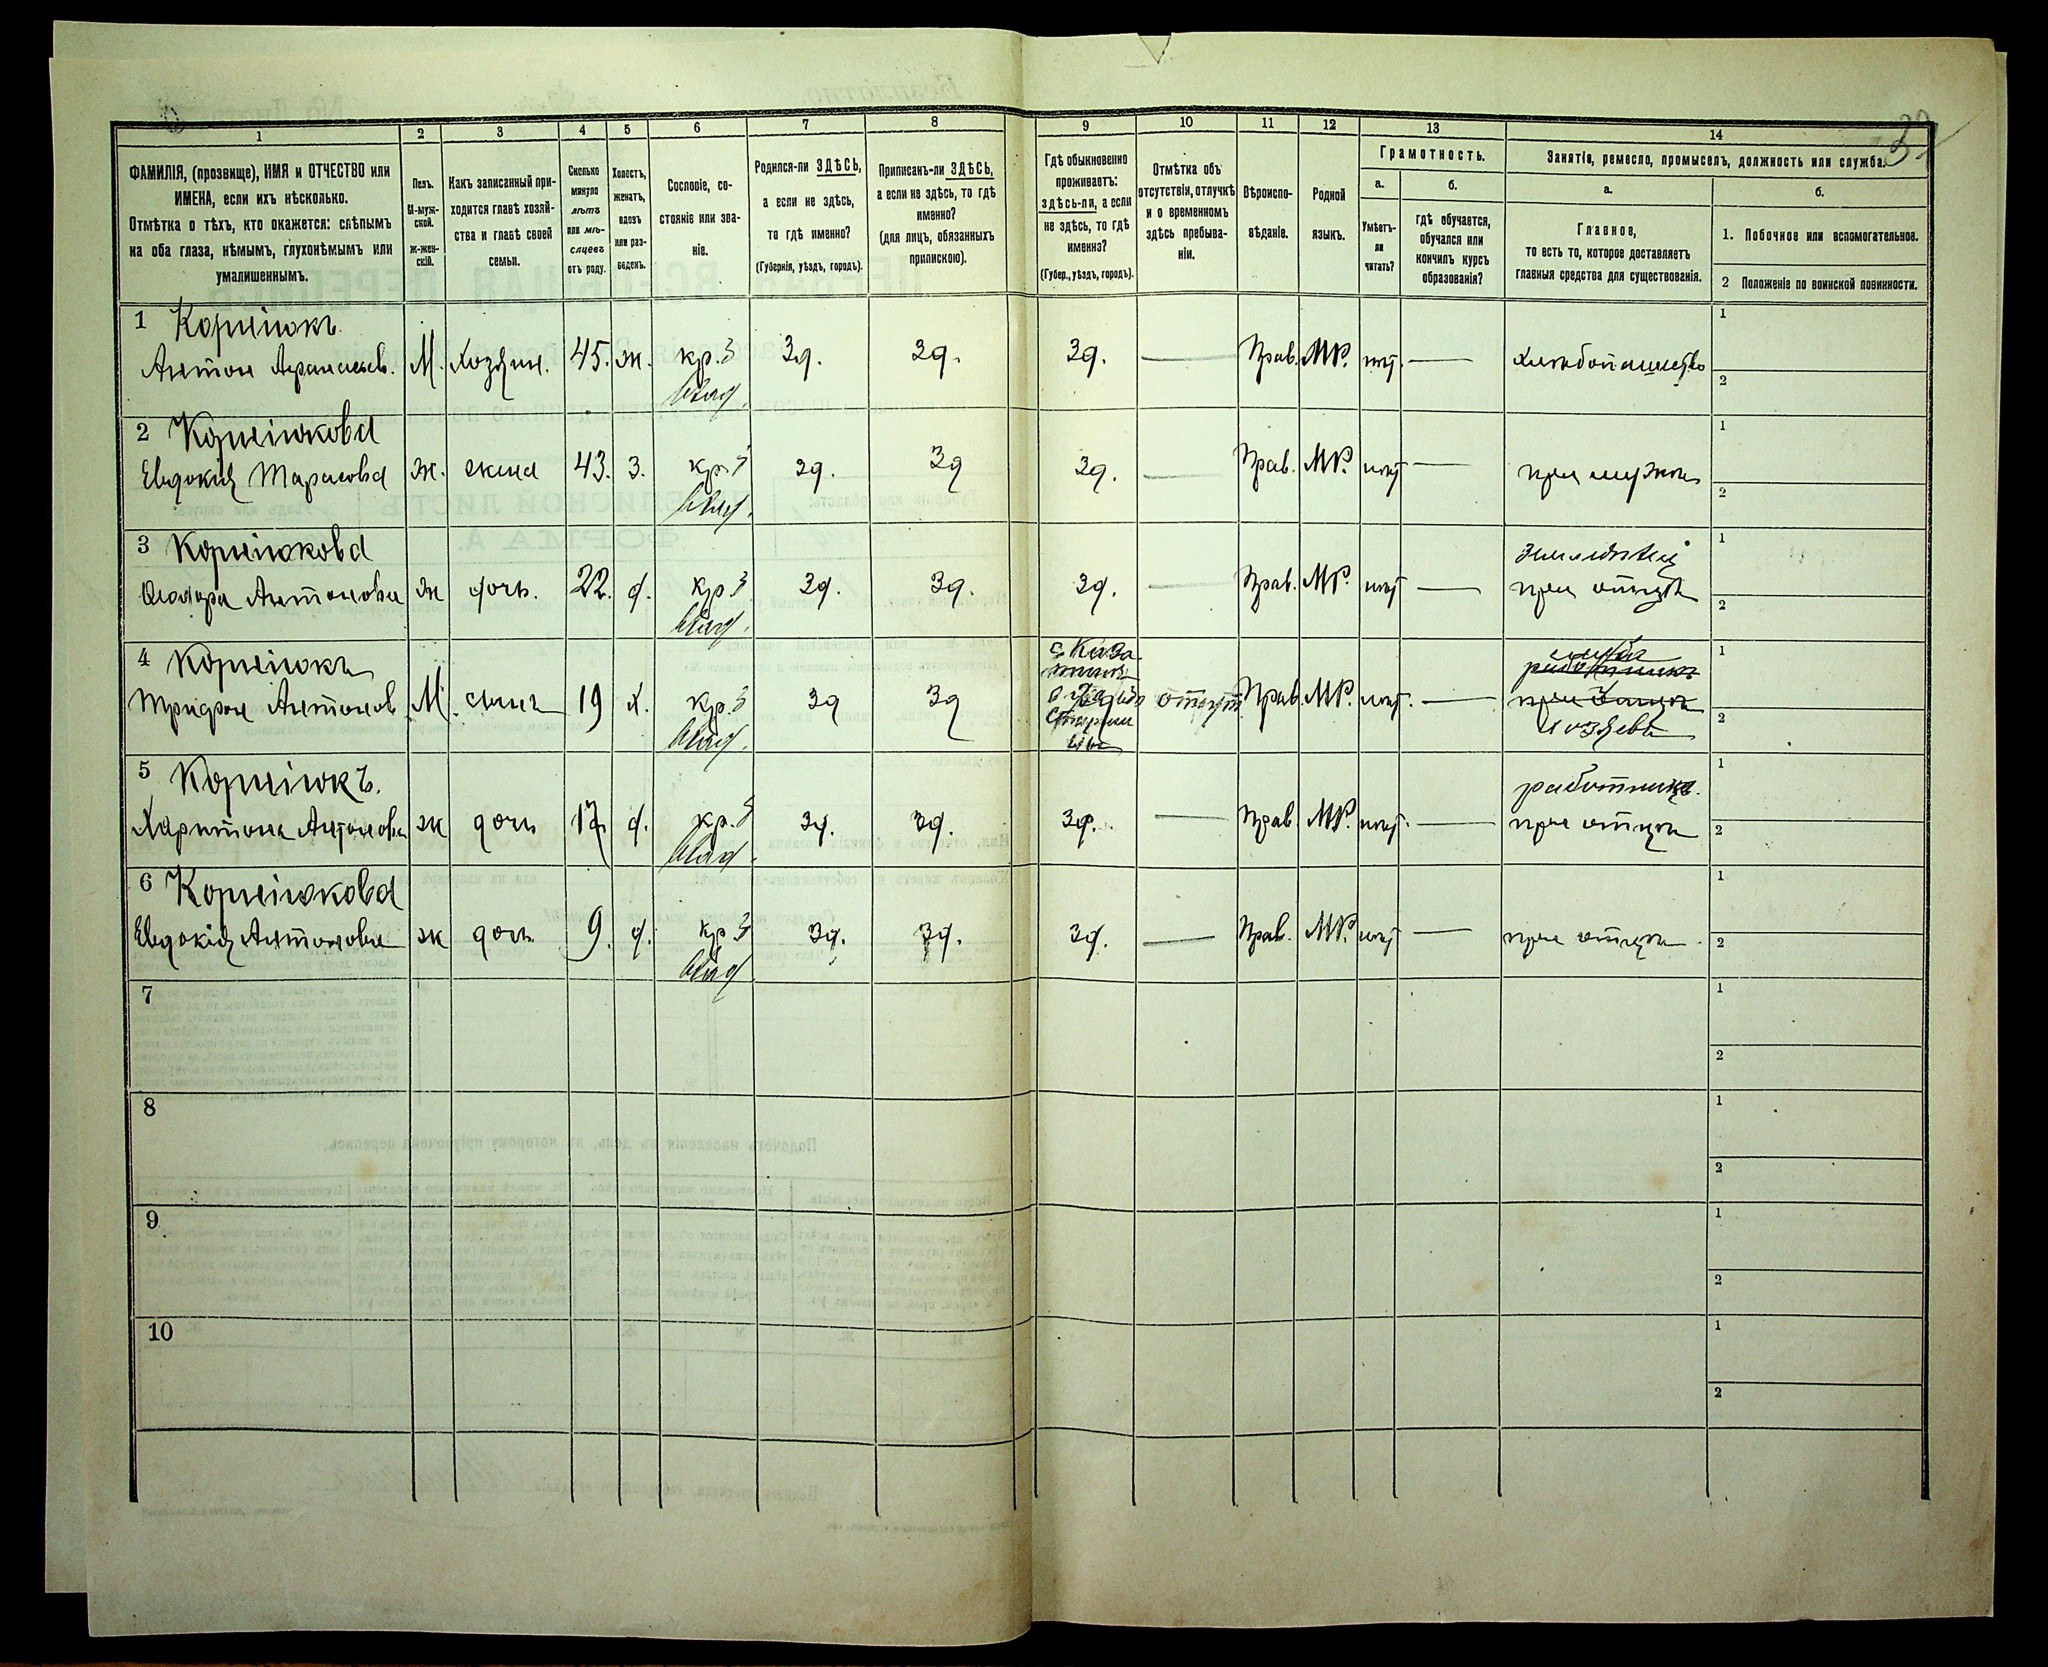 32
1 2 3 4 5 6 7 8 9 10 11 12 13 14
ФАМИЛІЯ, (прозвище), ИМЯ и ОТЧЕСТВО или
ИМЕНА, если ихъ нѣсколько.
Отмѣтка о тѣхъ, кто окажется: слѣпымъ
на оба глаза, нѣмымъ, глухонѣмымъ или
умалишеннымъ.
Полъ.
М-муж-
ской.
Ж-жен-
скій.
Какъ записанный при-
ходится главѣ хозяй-
ства и главѣ своей
семьи.
Сколько
минуло
лѣтъ
или мѣ-
сяцевъ
отъ роду.
Холостъ,
женатъ,
вдовъ
или раз-
веденъ.
Сословіе, со-
стояніе или зва-
ніе.
Родился-ли ЗДѢСЬ,
а если не здѣсь,
то гдѣ именно?
(Губернія, уѣздъ, городъ).
Приписанъ-ли ЗДѢСЬ,
а если не здѣсь, то гдѣ
именно?
(для лицъ, обязанныхъ
припискою).
Гдѣ обыкновенно
проживаетъ:
здѣсь-ли, а если
не здѣсь, то гдѣ
именнэ?
(Губер., уѣздъ, городъ).
Отмѣтка объ
отсутствіи, отлучкѣ
и о временномъ
здѣсь пребыва-
ніи.
Вѣроиспо-
вѣданіе.
Родной
языкъ.
Грамотность.
а.
Умѣетъ-
ли
читать?
б.
гдѣ обучается,
обучался или
кончилъ курсъ
образованія?
Занятіе, ремесло, промыселъ, должность или служба.
а.
Главное,
то есть то, которое доставляетъ
главныя средства для существованія.
б.
1. Побочное или вспомогательное.
2 Положеніе по воинской повинности.
1 Корнѣюкъ
Антон Афанасьев. М. Хозяин. 45. ж. кр. з влад. Зд. Зд. Зд. — Прав. МР. нѣт. — хлѣбопашество
1
2
2 Корнѣюкова
Евдокія Тарасова ж. жена 43. з. кр. з влад. зд. Зд Зд. — Прав. МР. нѣт — при мужѣ
1
2
3 Корнѣюкова
Антонова ж дочь. 22. д. кр з влад. Зд. Зд. Зд. — Прав. МР. нѣт —
при отцѣ
1
2
4 Корнѣюкъ
Трифон Антонов М. сынъ 19 х. кр. з влад. Зд Зд
с Каза-
отлуч. Прав МР. нѣт. —
1
2
5 Корнѣюкъ.
Харитона Антонова ж дочь 17 д. кр. з влад. Зд. Зд. Зд. — Прав. МР. нѣт. —
работница.
при отцѣ
1
2
6 Корнѣюкова
Евдокія Антонова ж дочь 9. д. кр з влад Зд. Зд. Зд. — Прав. МР. нѣт — при отцѣ
1
2
7
1
2
8
1
2
9
1
2
10
1
2